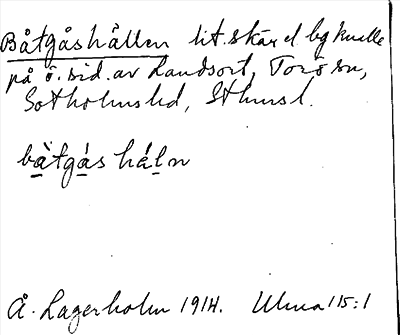 Båtgåshällen lit. skär el. bg kulle
på ö. sid. av Landsort, Torö sn,
Sotholms hd, Sthms l.
bàtgás háln
Å. Lagerholm 1914. Ulma 115:1